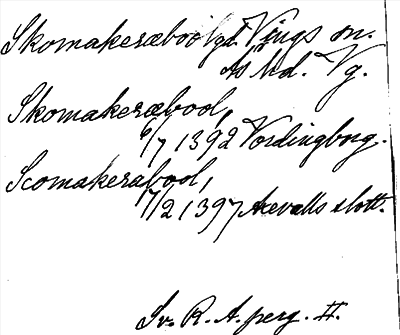 Skomakeræbool gd. Vings sn.
Ås hd. Vg.
Skomakeræbool,
6/7 1392 Vordingborg.
Scomakerabool,
17/2 1397 Axevalls slott.
Sv. R. A. perg. II.